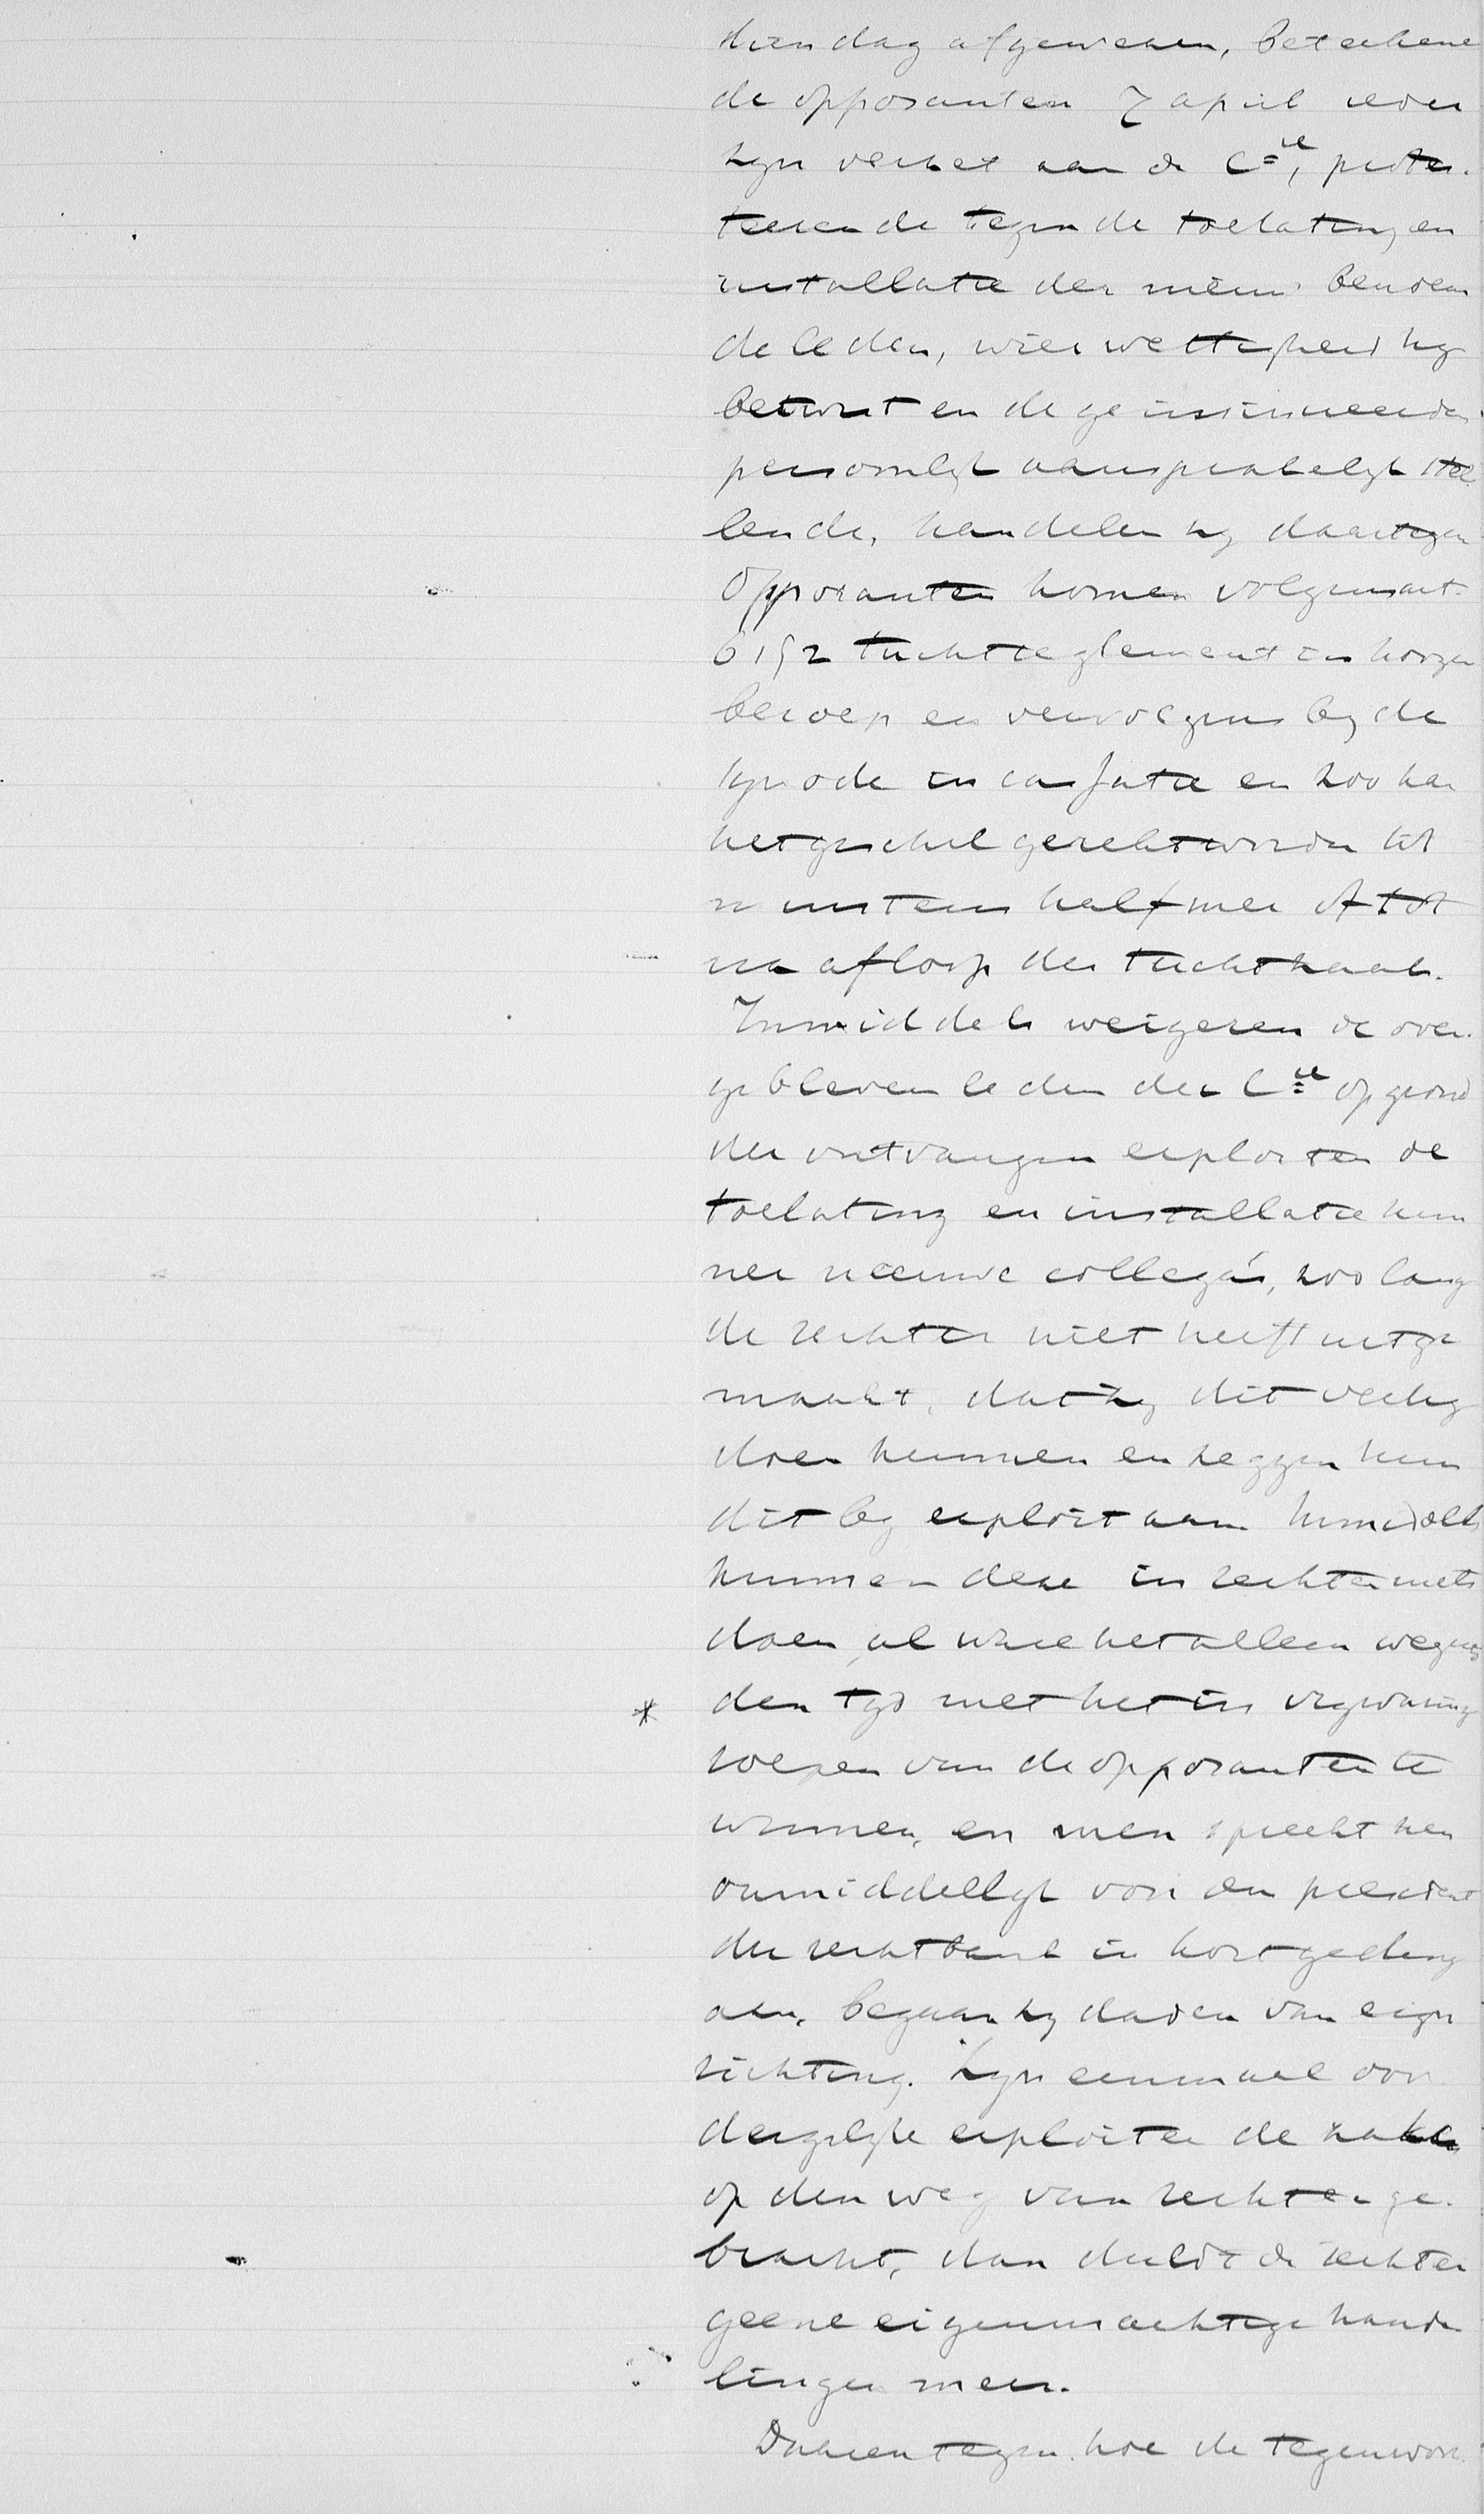 dien dag afgewezen, beteekene
de opposanten 7 april ieder
zijn verzet aan de Cie, protes-
teerende tegen de toelating en
installatie der nieuw benoem
de leden, wier wettigheid hij
betwist en de geinsinueerden
persoonlijk aansprakelijk stel
lende, handelen zij daartegen
Opposanten komen volgens art.
61 § 2 tuchtreglement in hooger
beroep en vervolgens bij de
synode in cassatie en zoo kan
het geschil gerekt worden tot
minstens half mei of tot
na afloop der tuchtzaak.
Inmiddels weigeren de over-
gebleven leden der Cie op grond
der ontvangen exploiten de
toelating en installatie hun
ner nieuwe collega's, zoo lang
de rechter niet heeft uitge
maakt, dat zij dit veilig
doen kunnen en zeggen hun
dit bij exploit aan. Inmiddels
kunnen deze in rechten niets
doen, al ware het alleen wegens
* den tijd met het in vrijwaring
roepen van de opposanten te
winnen, en men spreekt hen
onmiddellijk voor den president
der rechtbank in kort geding
aan, begaan zij daden van eigen
richting. Zijn eenmaal door
dergelijke exploiten de zaken
op den weg van rechten ge-
bracht, dan duldt de rechter
geene eigenmachtige hande
lingen meer.
Daarentegen, hoe de tegenwoor